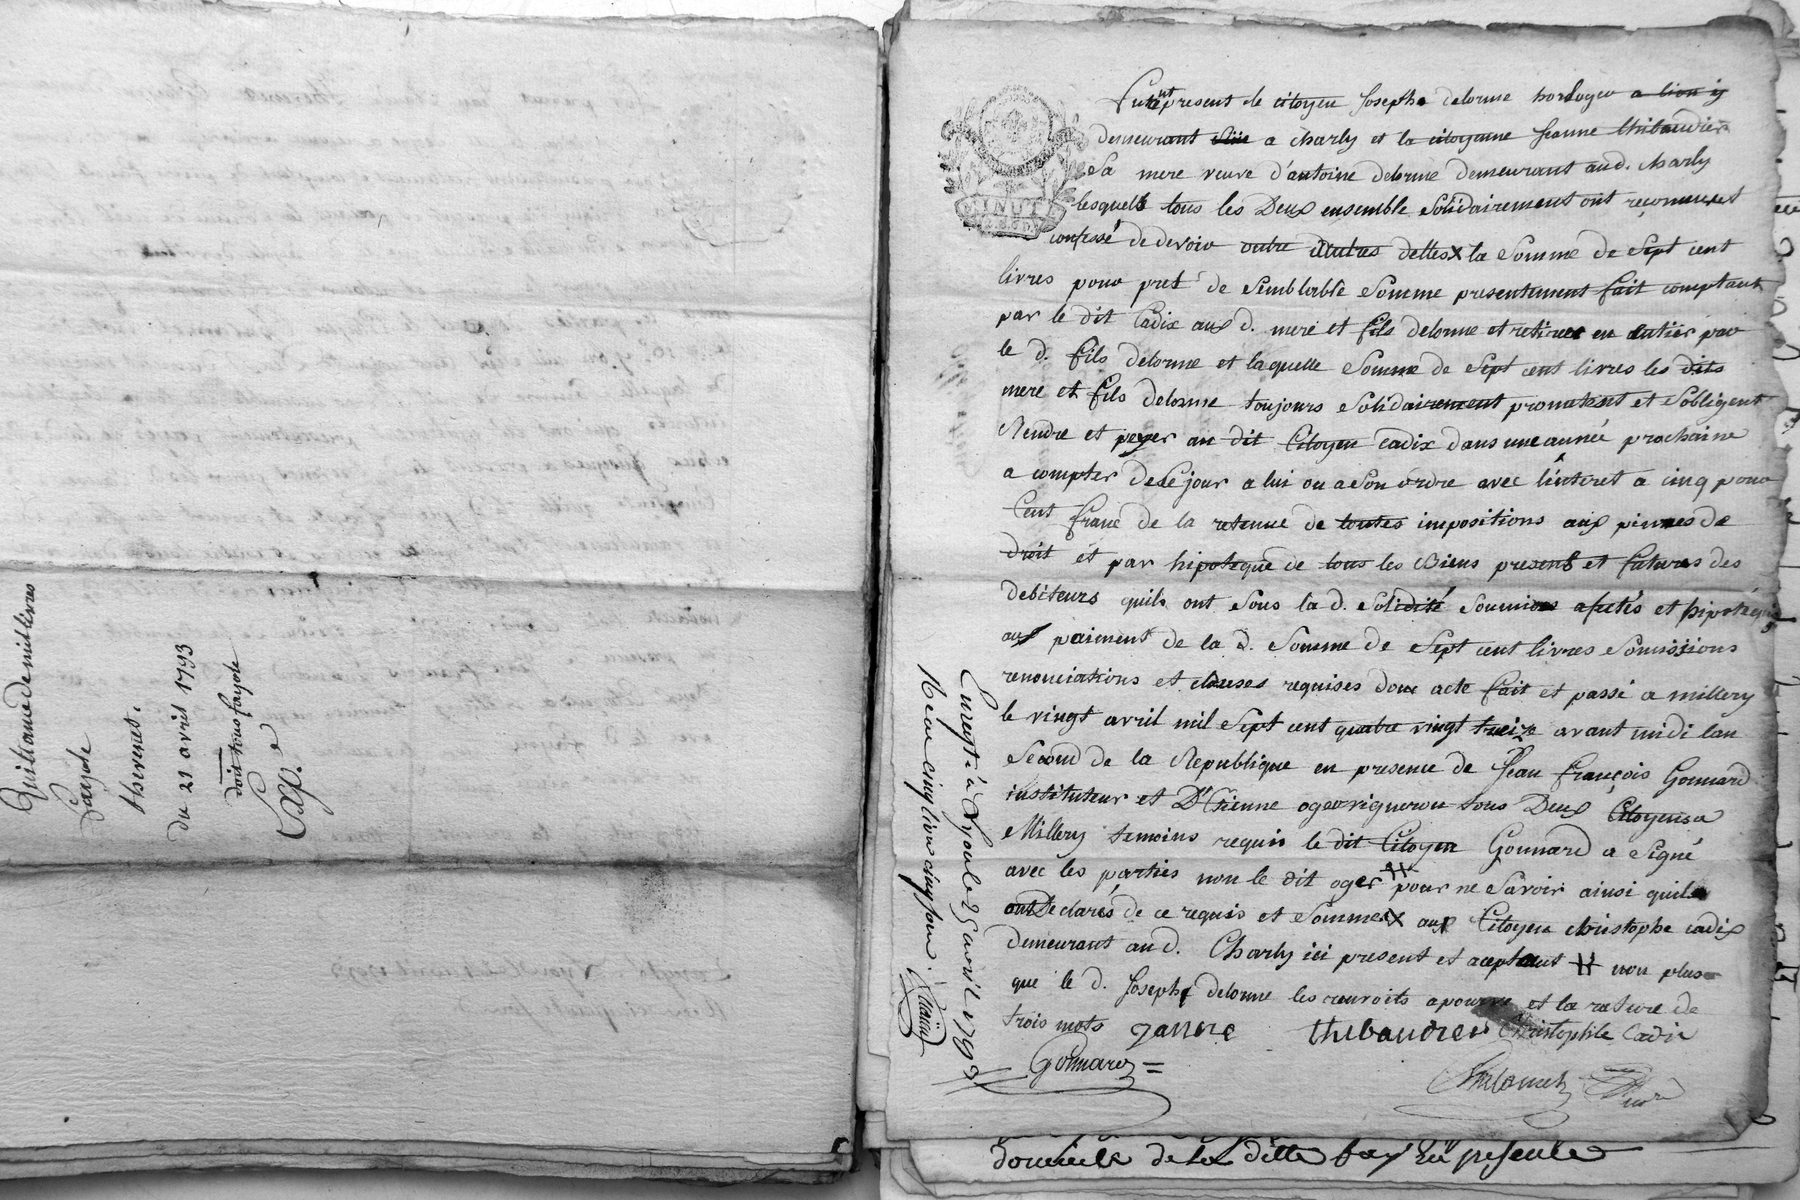 Quittance de mil livres
Fayole
thevenet.
du 21 avril 1793
doit tous fayole
Exp.e
MINUTE
Furent present le citoyen Josephe delorme horloger a lion y
demeurant a charly et la citoyenne Jeanne thibaudier
Sa mere veuve d'antoine delorme demeurant aud. charly
lesquels tous les Deux ensemble Solidairement ont reconnu et
confessé de devoir outre d'autres dettes x la Somme de Sept cent
livres pour pret de Semblable Somme presentement fait comptant
par le dit Cadix aux d. mere et fils delorme et retirer en entier par
le d. fils delorme et laquelle Somme de Sept cent livres les dits
mere et fils delorme toujours Solidairement promettent et Sobligent
Rendre et peyer au dit Citoyen Cadix dans une année prochaine
a compter de Ce jour a lui ou a Son ordre avec linteret a cinq pour
Cent franc de la retenue de toutes impositions aux peinnes de
droit et par hipoteque de tous les Biens present et futures des
debiteurs quils ont Sous la d. Solidité Soumises afectés et hipotequés
aux paiment de la d. Somme de Sept cent livres Somissions
renonciations et clauses requises donc acte fait et passé a millery
le vingt avril mil Sept cent quatre vingt treize avant midi lan
Second de la Republique en presence de Jean françois Gonnard
instituteur et D'Etienne oger vigneron tous Deux Citoyens a
Millery temoins requis le dit Citoyen Gonnard a Signé
avec les parties non le dit oger # pour ne Savoir ainsi quil
ont Declarés de ce requis et Sommes x aux Citoyen christophe cadix
demeurant aud. Charly ici present et aceptant # non plus
que le d. Josephe delorme les renvoits apouvre et la rature de
trois mots janne thibaudier Christophle Cadix
Gonnard
Thevenet
Enregté à Vourles 25 avril 1793
Reçu cinq livres cinq sous.
domicile de la ditte fay Lui presente